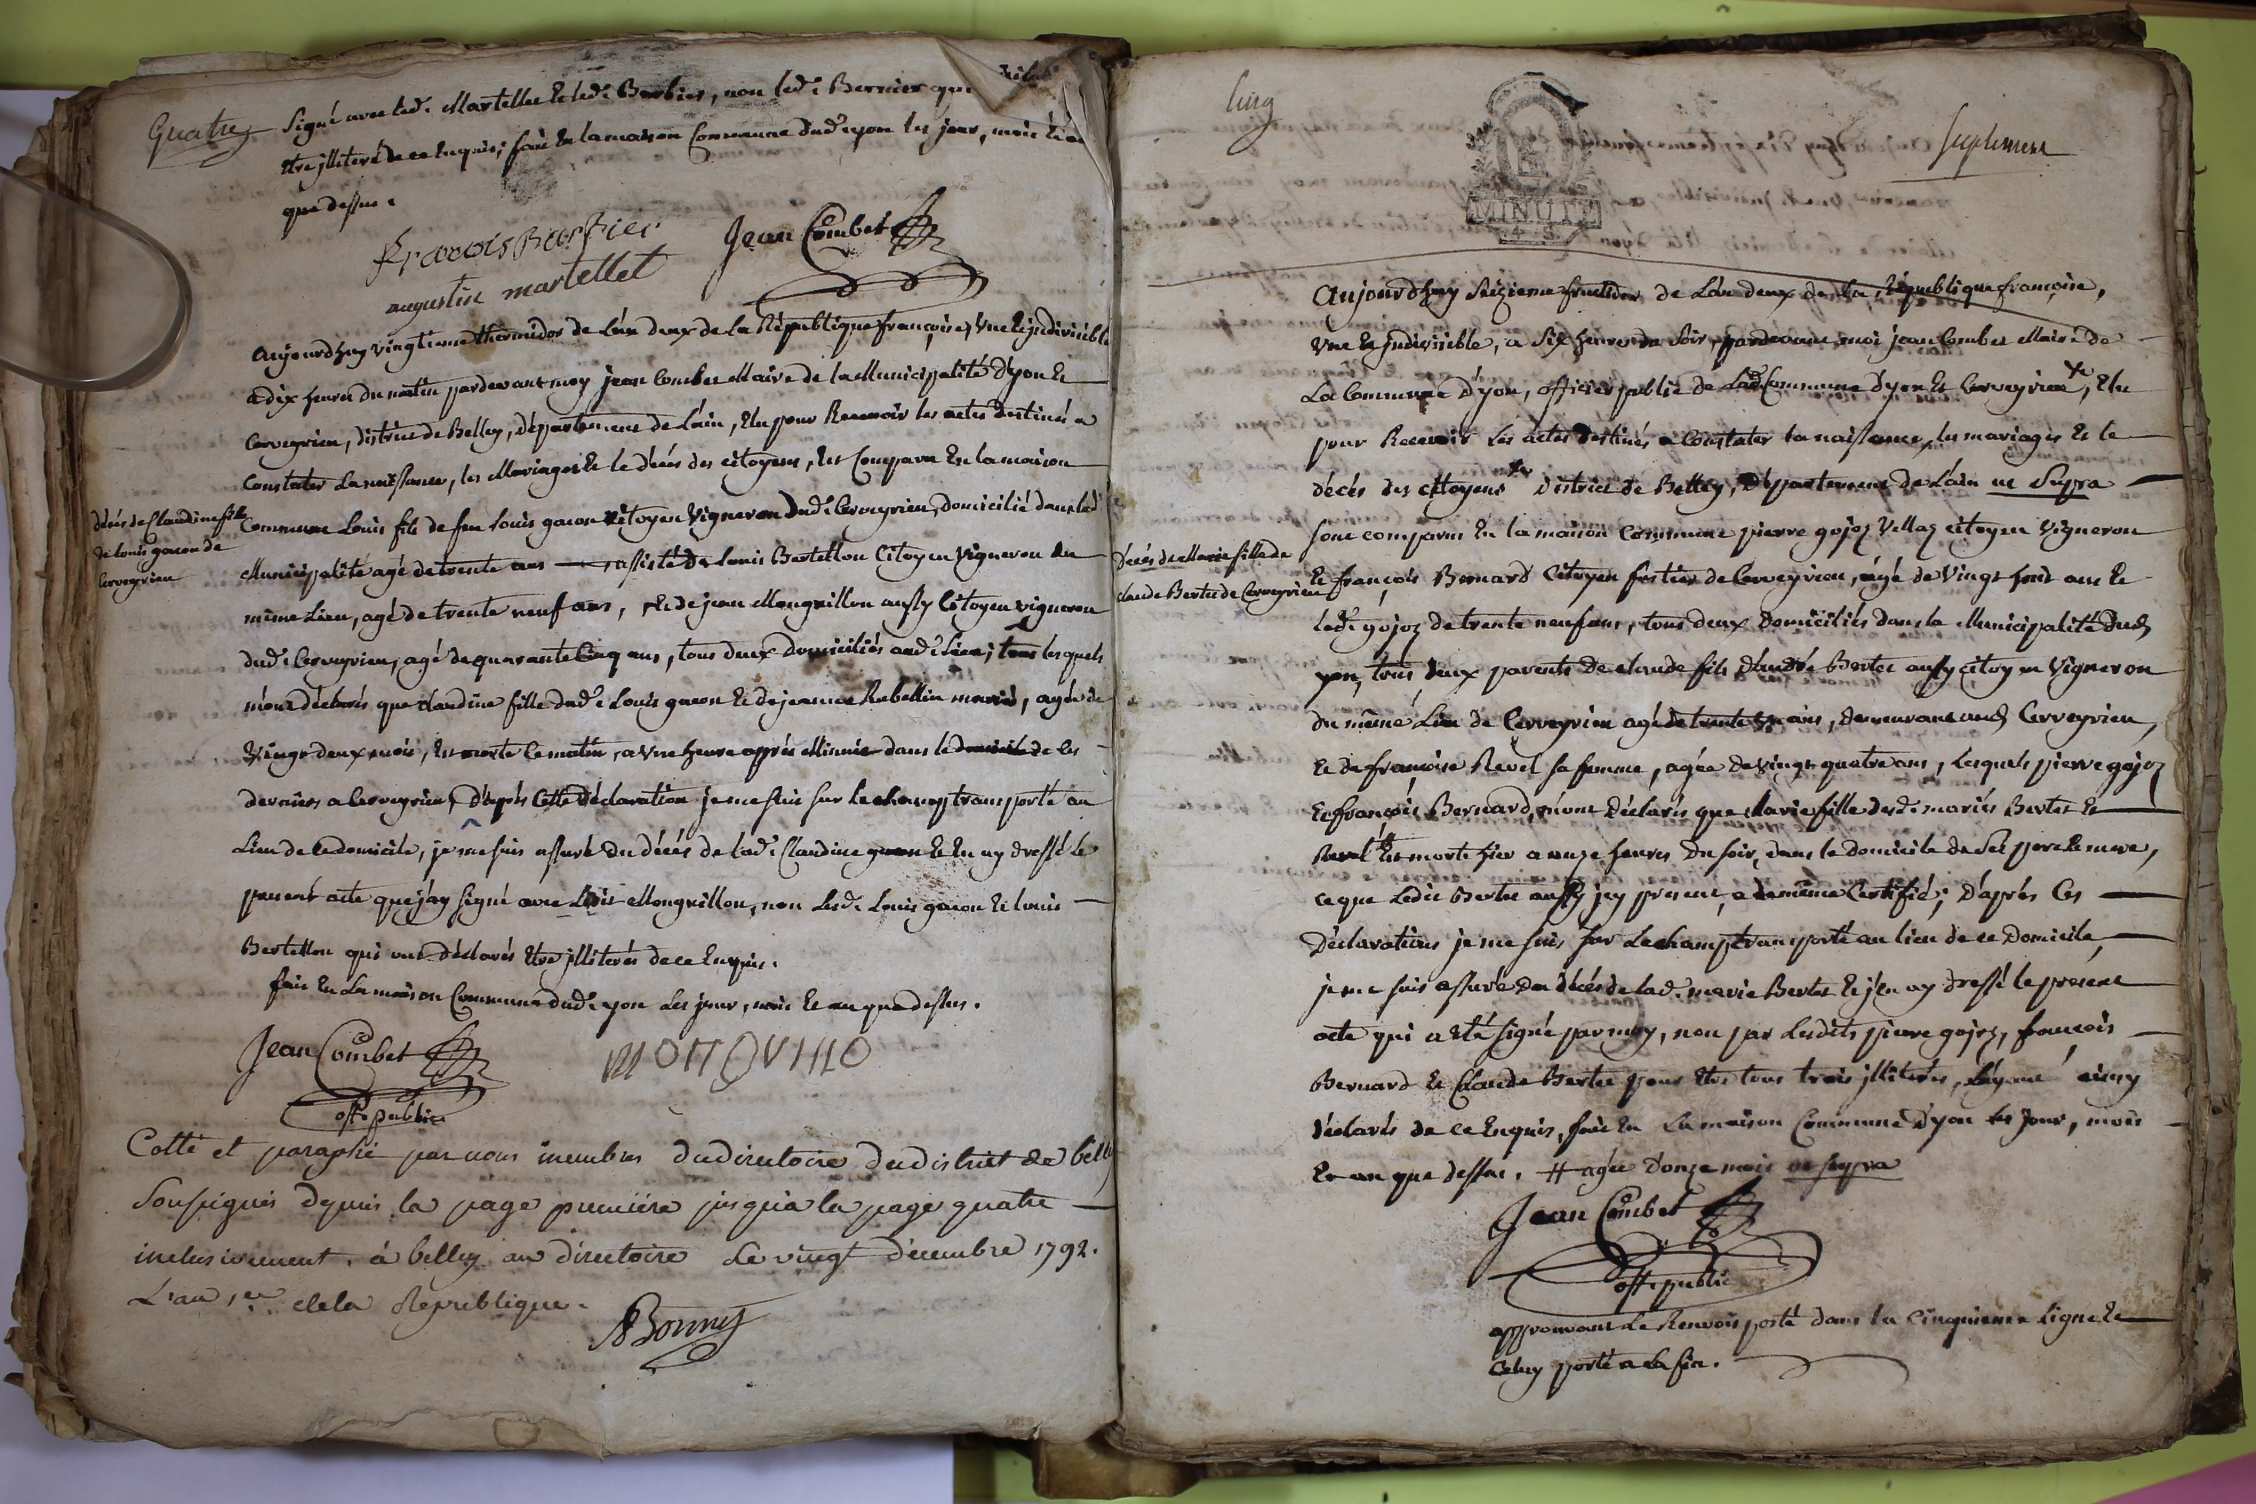 Quatre
Signé avec led. Martellet et led. Barbier, non led. Bernier qui
être jlliteré de ce Enquis; fait En la maison Commune dud. yon les jour, mois et an
que dessus.
francois Barbier
Jean Combet
augustin martellet
Aujourdhuy vingtieme thermidor de Lan deux de la République françoise, Une et jndivisible
a dix heures du matin pardevant moy jean Combet Maire de la Municipalité d'yon et
Cerveyrieu, district de Belley, département de Láin, Elu pour Recevoir les actes destinés a
Constater La naissance, les Mariages et le décés des citoyens, Est Comparu En la maison
décés de Claudine fille
de Louis gacon de
Cerveyrieu
Commune Louis fils de feu Louis gacon Citoyen Vigneron dud. Cerveyrieu, domicilié dans lad.
Municipalité agé de trente ans assisté de Louis Bertellon Citoyen Vigneron du
même Lieu, agé de trente neuf ans, et de jean Monguillon aussy Citoyen vigneron
dud. Cerveyrieu, agé de quarante Cinq ans, tous deux domiciliés aud. Lieu; lesquels
m'ont déclarés que claudine fille dud. Louis gacon et de jeanne Rabellin mariés, agée de
Vingt deux mois, Est morte Ce matin, a Une heure après Minuit dans le domicile de ces
derniers a Cerveyrieu, D'après Cette déclaration je me suis sur Le champ transporté au
Lieu de ce domicile, je me suis assuré du décés de lad. Claudine gacon et En ay dressé le
present acte que j'ay signé avec Monguillon, non Lesd. Louis gacon et Louis
Bertellon qui ont déclarés Etre jlliterés de ce Enquis.
fait En La maison Commune dud. yon Les jour, mois et an que dessus.
Jean Combet
off. public
Cotté et paraphé par nous membres du directoire du district de belley
Soussignés depuis la page premiere jusqu'a la page quatre
inclusivement. à belley au directoire le vingt décembre 1792.
L'an 1er de la République.
Bonnet
Cinq
Suplement
MINUTE
Aujourdhuy Seizieme fructidor de Lan deux de la République françoise,
Une et jndivisible, a Six heures du Soir pardevant moi jean Combet Maire de
La Commune d'yon, officier public de Lad. Commune d'yon et Cerveyrieu, Elu
pour Recevoir Les actes destinés a Constater la naissance, les mariages et le
décés des citoyens District de Belley, Département de Láin ut Supra
sont comparus En la maison Commune pierre gojoz Villaz citoyen Vigneron
Décés de Marie fille de
claude Bertet de Cerveyrieu
Et françois Bernard Citoyen de Cerveyrieu, agé de Vingt huit ans Et
Led. gojoz de trente neuf ans, tous deux Domiciliés dans la Municipalité dud.
yon, tous deux parents de claude fils d'André Bertet aussy citoyen Vigneron
du même Lieu de Cerveyrieu agé de trente ans, demeurant aud. Cerveyrieu,
Et de françoise Revel sa femme, agée de Vingt quatre ans, Lesquels pierre gojoz
Et françois Bernard, m'ont Déclarés que Marie fille desd. mariés Bertet Et
Revel Est morte hier a onze heures du soir, dans le domicile de Ses pere et mere,
ce que Ledit Bertet aussy jcy present, a de même Certifié; D'après Ces
Déclarations je me suis sur Le champ transporté au lieu de ce Domicile,
je me suis assuré du décés de lad. marie Bertet et j'en ay dressé le present
acte qui a été signé par moy, non par Lesdits pierre gojoz, francois
Bernard Et Claude Bertet pour Etre tous trois jlliterés, L'ayant ainsy
déclarés de ce Enquis, fait En La maison Commune d'yon les jour, mois
Et an que dessus. # agée d'onze mois ut supra
Jean Combet
off. public
approuvant Le Renvoi porté dans la Cinquieme Ligne Et
Celuy porté a la fin.